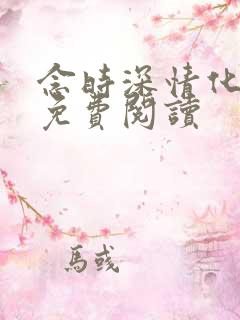 念時深情化
免費閱讀
馬彧